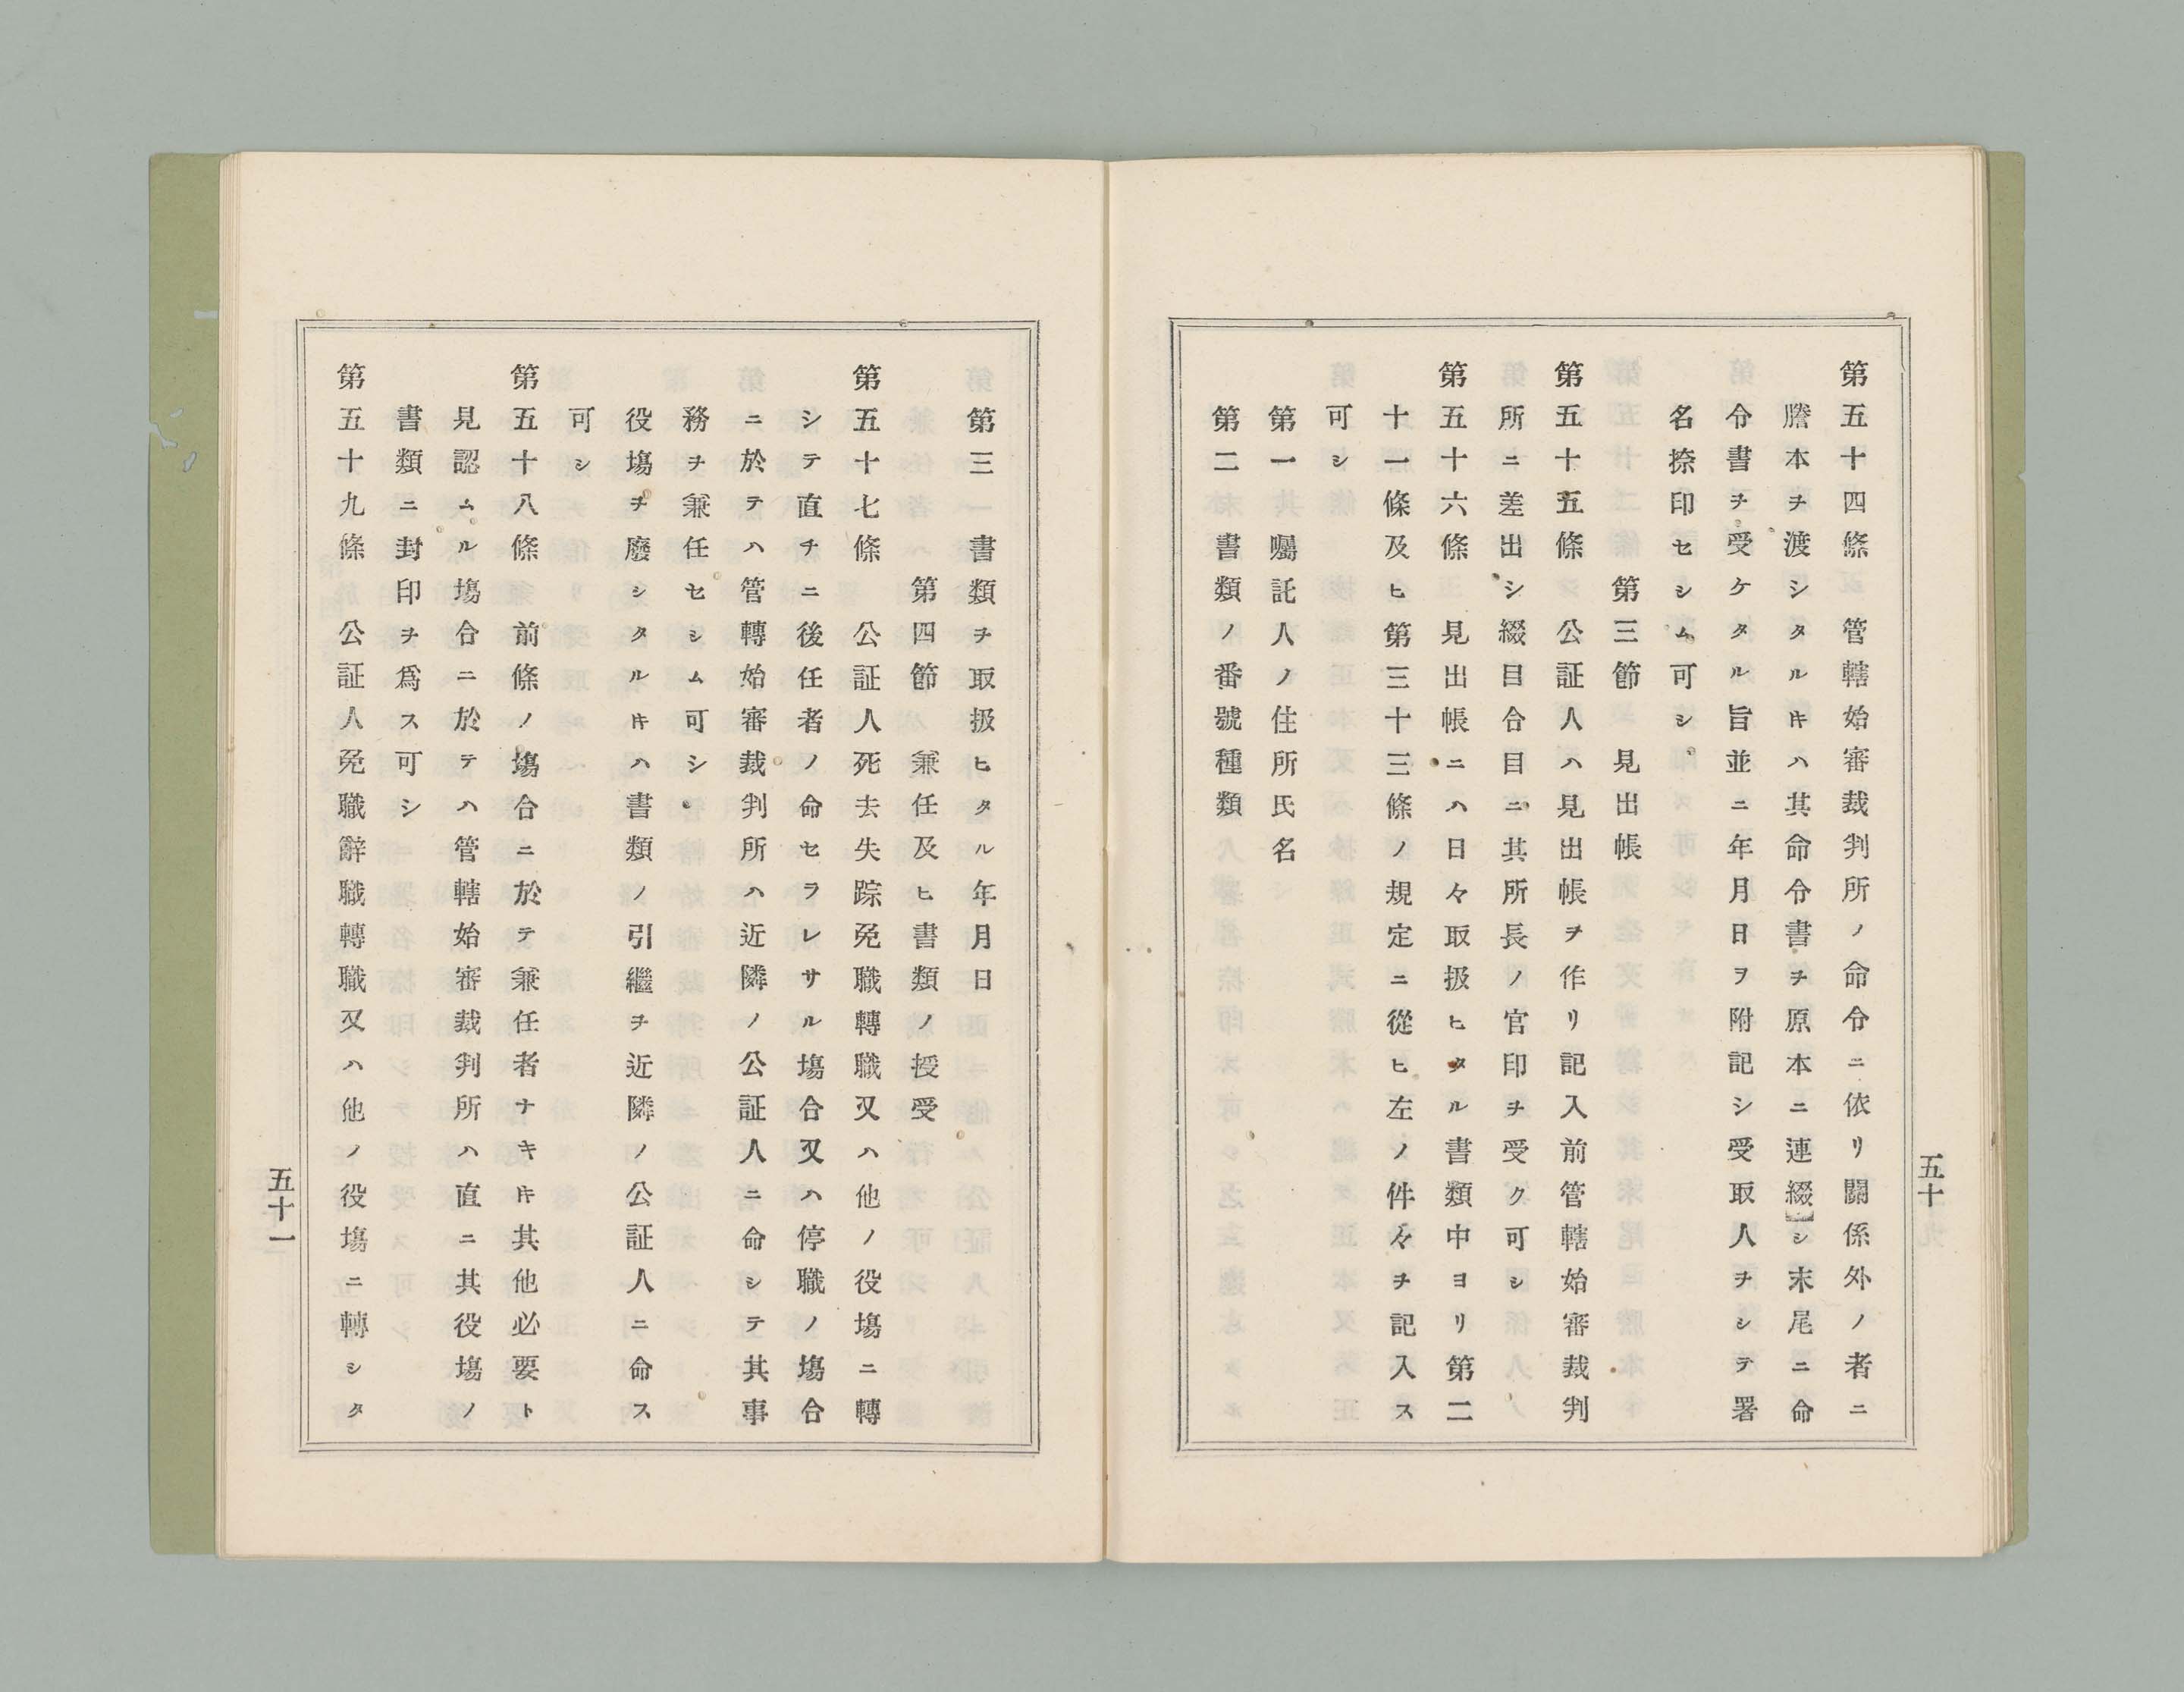 五十
第五十四條　管轄始審裁判所ノ命令ニ依リ關係外ノ者ニ
謄本ヲ渡シタルㇳキハ其命令書ヲ原本ニ連綴シ末尾ニ命
令書ヲ受ケタル旨並ニ年月日ヲ附記シ受取人ヲシテ署
名捺印セシム可シ
第三節　見出帳
第五十五條　公証人ハ見出帳ヲ作リ記入前管轄始審裁判
所ニ差出シ綴目合目ニ其所長ノ官印ヲ受ク可シ
第五十六條　見出帳ニハ日々取扱ヒタル書類中ヨリ第二
十一條及ヒ第三十三條ノ規定ニ從ヒ左ノ件々ヲ記入ス
可シ
第一　囑託人ノ住所氏名
第二　書類ノ番號種類
第三　書類ヲ取扱ヒタル年月日
第四節　兼任及ヒ書類ノ授受
第五十七條　公証人死去失踪免職轉職又ハ他ノ役塲ニ轉
シテ直チニ後任者ノ命セラレサル塲合又ハ停職ノ塲合
ニ於テハ管轉始審裁判所ハ近隣ノ公証人ニ命シテ其事
務ヲ兼任セシム可シ
役塲ヲ廢シタルㇳキハ書類ノ引繼ヲ近隣ノ公証人ニ命ス
可シ
第五十八條　前條ノ塲合ニ於テ兼任者ナキㇳキ其他必要ト
見認ムル塲合ニ於テハ管轄始審裁判所ハ直ニ其役塲ノ
書類ニ封印ヲ爲ス可シ
第五十九條　公証人免職辭職轉職又ハ他ノ役塲ニ轉シタ
五十一